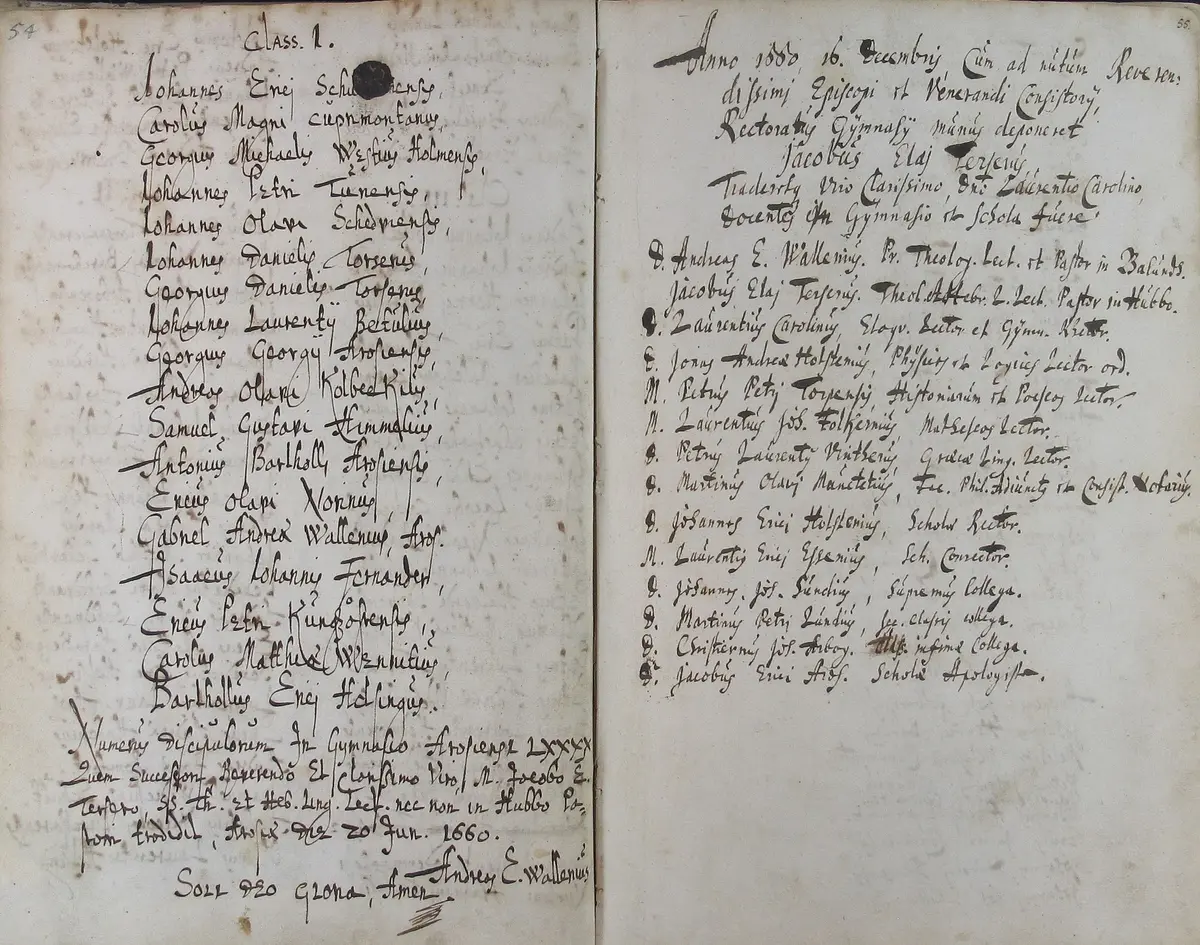 54
Class. I.
Iohannes Erici
Carolus Magni Cuprimontanus,
Georgius Michaelis Westius Holmensis,
Iohannes Petri Tunensis,
Iohannes Olavi Schedviensis,
Iohannes Danielis Torsenius,
Georgius Danielis Torsenius,
Iohannes Laurentij Betulius,
Georgius Georgij Arosiensis,
Andreas Olavi Kolbeckius,
Samuel Gustavi Himmelius,
Antonius Bartholli Arosiensis,
Ericus Olavi Nornus,
Gabriel Andreæ Wallenius, Aros.
Isaacus Iohannis Fernander,
Ericus Petri Kungzörensis,
Carolus Matthiæ Wennitius,
Barthollus Erici Helsingus.
Numerus discipulorum In Gymnasio Arosiensi LXXXX
Quem Successori Reverendo Et Clarissimo Viro, M. Jacobo E.
Tersero, SS. Th. et Heb. Ling. Lect. nec non in Hubbo Pa-
stori tradidit, Arosiæ die 20 Jun. 1660.
Andreas E. Wallenius
Soli Deo Gloria, Amen.
55.
Anno 1660, 16. Decembris Cum ad nutum Reveren:
dissimi Episcopi et Venerandi Consistorij,
Rectoratus Gymnasij munus deponeret
Jacobus Elaj Terserus,
Viro Clarissimo, Dno Laurentio Carolino,
Docentes in Gymnasio et Schola fuere:
D. Andreas E. Wallenius. Pr. Theolog. Lect. et Pastor in
Jacobus Elaj Terserus. Theol. et Hebr. L. Lect. Pastor in Hubbo.
D. Laurentius Carolinus, Eloqv. Lector et Gymn. Rector.
D. Jonas Andreæ Holstenius, Physices et Logices Lector ord.
M. Petrus Petrj Torsensis Historiarum et Poeseos Lector.
M. Laurentius Joh. Folkernius Matheseos Lector.
D. Petrus Laurentij Vintherus Græcæ Ling. Lector.
D. Martinus Olavj Munctelius, Lec. Phil. Adiunct9 et Consist. Notarius.
D. Johannes Ericj Holstenius, Scholæ Rector.
M. Laurenti9 Ericj Essenius, Sch. Conrector.
D. Johannes. Joh. Sundius, Supremus Collega.
D. Martinus Petrj Lundius, Sec. classis collega.
D. Christiernus Joh. Arbog. infimæ Collega.
D. Jacobus Ericj Aros. Scholæ Apologista.